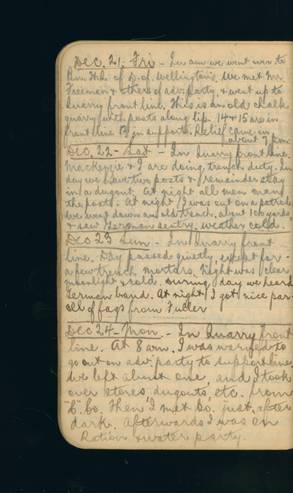 Dec. 21. Fri - In am we went over to
Bn. Hd. of D. of Wellingtons. We met Mr.
Freeman & others of adv. party, & went up to
Quarry front line. This is an old chalk
quarry with posts along lip. 14 & 15 are in
front line 13 in support. Relief came in
about 7 pm.
Dec. 22 - Sat - In Quarry front line.
Mackenzie & I are doing trench duty. In
day we have two posts & remainder stay
in a dugout. At night all men man
the posts. At night I was out on a patrol
we went down an old trench, about 100 yards,
& saw German sentry. Weather cold.
Dec 23 Sun - In Quarry front
line. Day passed quietly, except for
a few trench mortars. Night was clear
moonlight & cold. During day we heard
German band. At night I got nice par-
cel of fags from Fuller
Dec 24 - Mon - In Quarry front
line. At 8 am, I was warned to
go out on adv. party to support line
We left about one, and I took
over stores, dugouts, etc. from
"C" Co. Then I met Co. just after
dark. Afterwards I was on
Ration & water party.